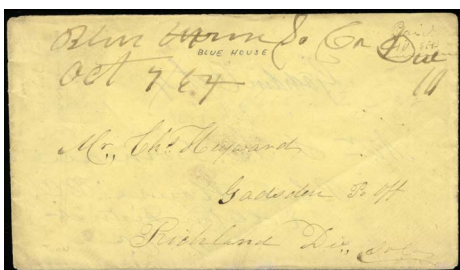 Blue House So Ca Due
BLUE HOUSE
Oct 7 64 10
Mr,, Chs. Heyward
Gadsden P. Off
Richland Dis,, So Ca